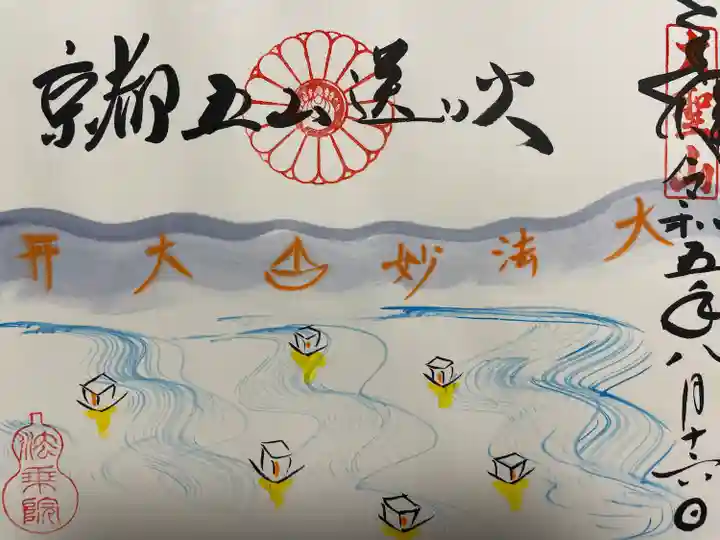 京都五山送り火
令和五年八月十六日
开 大 妙 法 大
法乗院